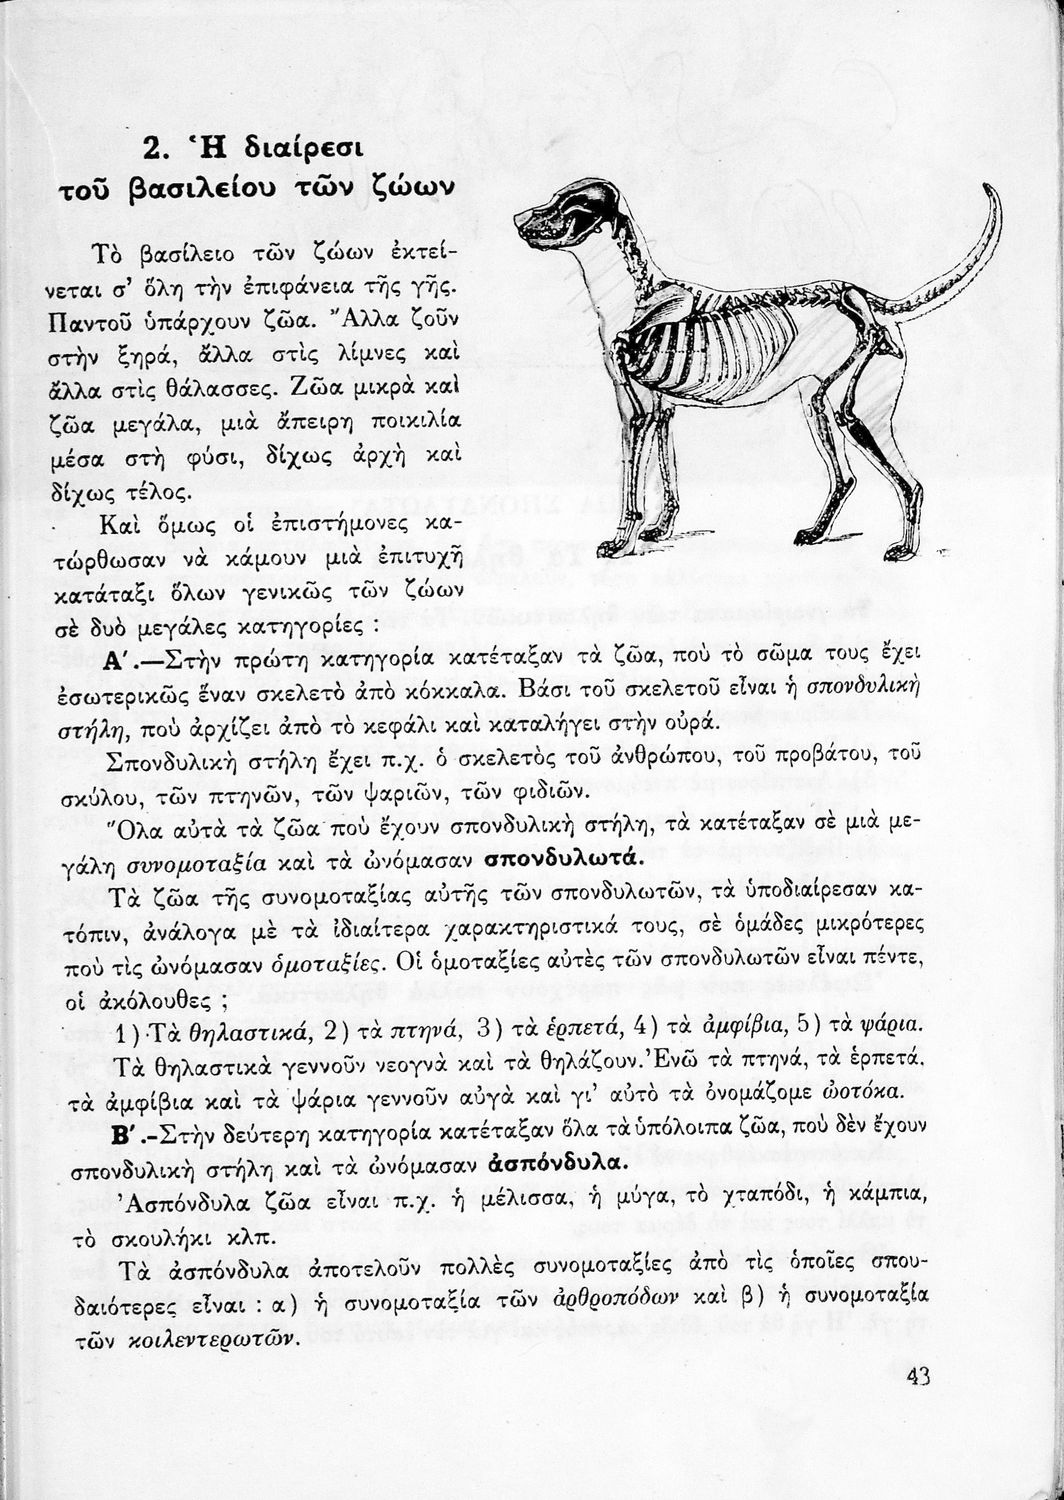 2. Ἡ διαίρεσι
τοῦ βασιλείου τῶν ζώων
Τὸ βασίλειο τῶν ζώων ἐκτεί-
νεται σ' ὅλη τὴν ἐπιφάνεια τῆς γῆς.
Παντοῦ ὑπάρχουν ζῶα. Ἄλλα ζοῦν
στὴν ξηρά, ἄλλα στὶς λίμνες καὶ
ἄλλα στὶς θάλασσες. Ζῶα μικρὰ καὶ
ζῶα μεγάλα, μιὰ ἄπειρη ποικιλία
μέσα στὴ φύσι, δίχως ἀρχὴ καὶ
δίχως τέλος.
Καὶ ὅμως οἱ ἐπιστήμονες κα-
τώρθωσαν νὰ κάμουν μιὰ ἐπιτυχῆ
κατάταξι ὅλων γενικῶς τῶν ζώων
σὲ δυὸ μεγάλες κατηγορίες :
Α'.—Στὴν πρώτη κατηγορία κατέταξαν τὰ ζῶα, ποὺ τὸ σῶμα τους ἔχει
ἐσωτερικῶς ἕναν σκελετὸ ἀπὸ κόκκαλα. Βάσι τοῦ σκελετοῦ εἶναι ἡ σπονδυλικὴ
στήλη, ποὺ ἀρχίζει ἀπὸ τὸ κεφάλι καὶ καταλήγει στὴν οὐρά.
Σπονδυλικὴ στήλη ἔχει π.χ. ὁ σκελετὸς τοῦ ἀνθρώπου, τοῦ προβάτου, τοῦ
σκύλου, τῶν πτηνῶν, τῶν ψαριῶν, τῶν φιδιῶν.
Ὅλα αὐτὰ τὰ ζῶα ποὺ ἔχουν σπονδυλικὴ στήλη, τὰ κατέταξαν σὲ μιὰ με-
γάλη συνομοταξία καὶ τὰ ὠνόμασαν σπονδυλωτά.
Τὰ ζῶα τῆς συνομοταξίας αὐτῆς τῶν σπονδυλωτῶν, τὰ ὑποδιαίρεσαν κα-
τόπιν, ἀνάλογα μὲ τὰ ἰδιαίτερα χαρακτηριστικά τους, σὲ ὁμάδες μικρότερες
ποὺ τὶς ὠνόμασαν ὁμοταξίες. Οἱ ὁμοταξίες αὐτὲς τῶν σπονδυλωτῶν εἶναι πέντε,
οἱ ἀκόλουθες ;
1) Τὰ θηλαστικά, 2) τὰ πτηνά, 3) τὰ ἑρπετά, 4) τὰ ἀμφίβια, 5) τὰ ψάρια.
Τὰ θηλαστικὰ γεννοῦν νεογνὰ καὶ τὰ θηλάζουν. Ἐνῶ τὰ πτηνά, τὰ ἑρπετά,
τὰ ἀμφίβια καὶ τὰ ψάρια γεννοῦν αὐγὰ καὶ γι' αὐτὸ τὰ ὀνομάζομε ὠοτόκα.
Β'.-Στὴν δεύτερη κατηγορία κατέταξαν ὅλα τὰ ὑπόλοιπα ζῶα, ποὺ δὲν ἔχουν
σπονδυλικὴ στήλη καὶ τὰ ὠνόμασαν ἀσπόνδυλα.
Ἀσπόνδυλα ζῶα εἶναι π.χ. ἡ μέλισσα, ἡ μύγα, τὸ χταπόδι, ἡ κάμπια,
τὸ σκουλήκι κλπ.
Τὰ ἀσπόνδυλα ἀποτελοῦν πολλὲς συνομοταξίες ἀπὸ τὶς ὁποῖες σπου-
δαιότερες εἶναι : α) ἡ συνομοταξία τῶν ἀρθροπόδων καὶ β) ἡ συνομοταξία
τῶν κοιλεντερωτῶν.
43